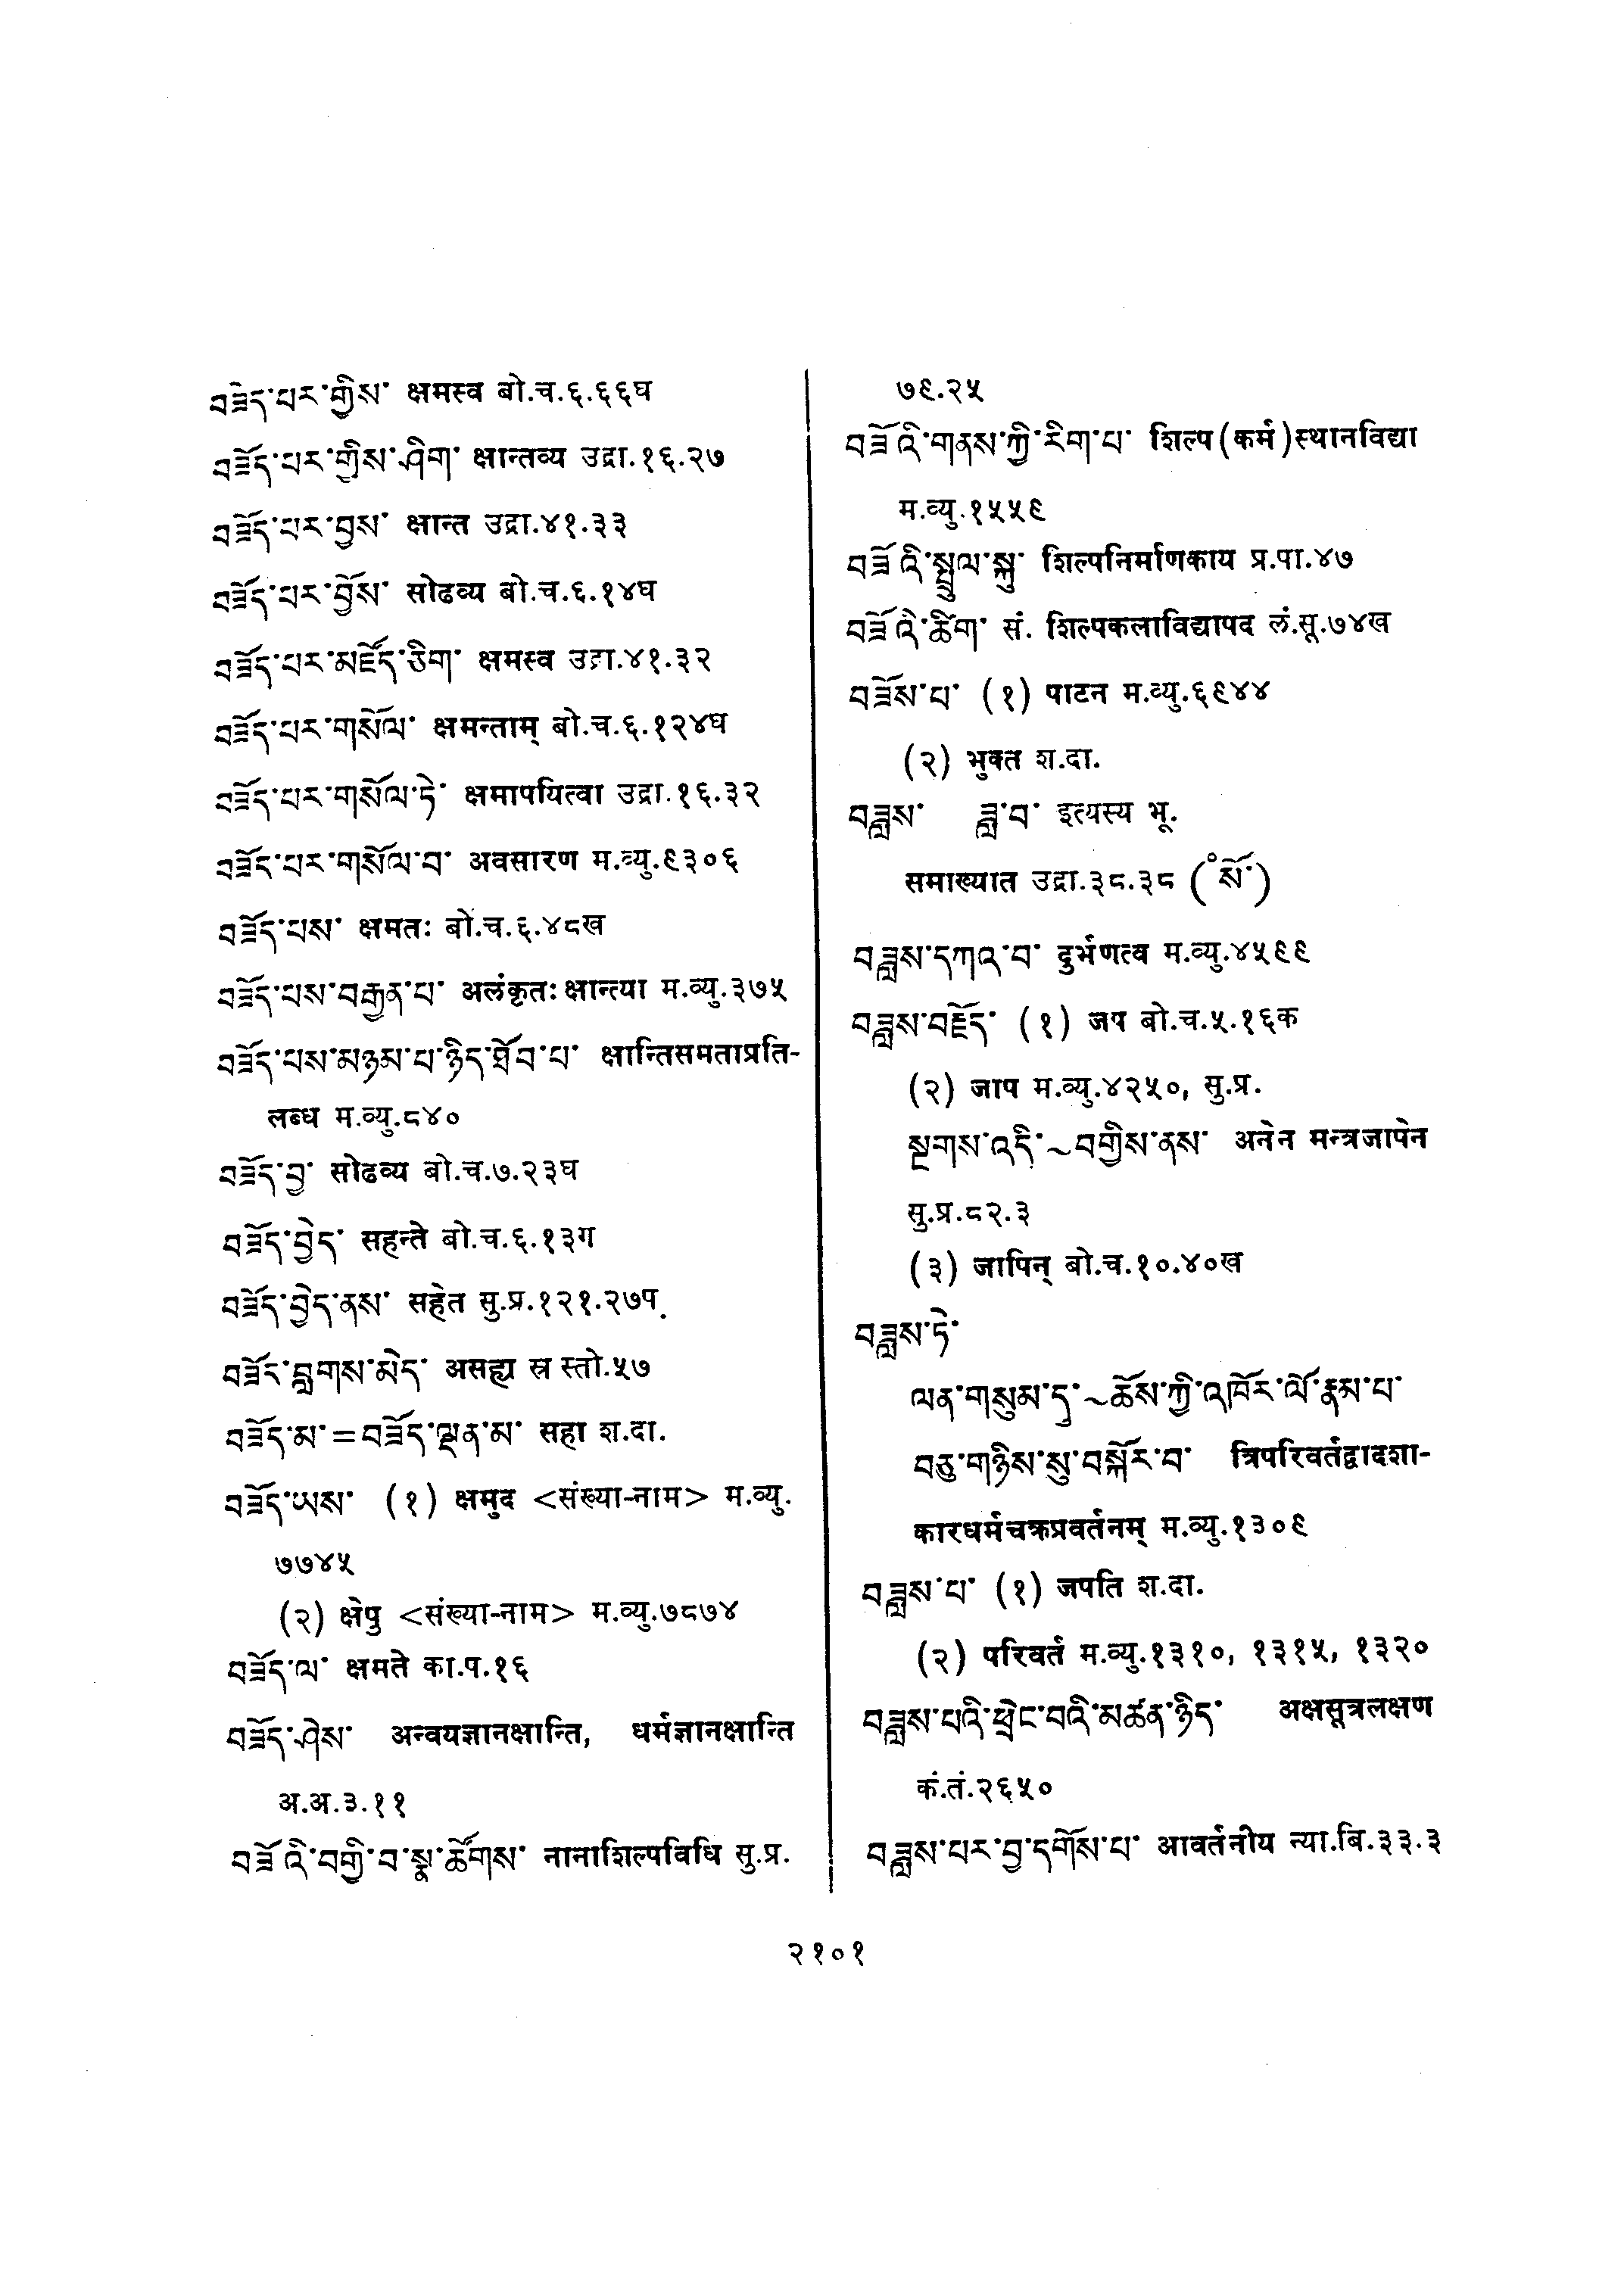 བཟོད་པར་གྱིས་ क्षमस्व बो.च.६.६६घ
བཟོད་པར་གྱིས་ཤིག་ क्षान्तव्य उद्रा.१६.२७
བཟོད་པར་བྱས་ क्षान्त उद्रा.४१.३३
བཟོད་པར་བྱོས་ सोढव्य बो.च.६.१४घ
བཟོད་པར་མཛོད་ཅིག་ क्षमस्व उद्रा.४१.३२
བཟོད་པར་གསོལ་ क्षमन्ताम् बो.च.६.१२४घ
བཟོད་པར་གསོལ་ཏེ་ क्षमापयित्वा उद्रा.१६.३२
བཟོད་པར་གསོལ་བ་ अवसारण म.व्यु.९३०६
བཟོད་པས་ क्षमतः बो.च.६.४८ख
བཟོད་པས་བརྒྱན་པ་ अलंकृतः क्षान्त्या म.व्यु.३७५
བཟོད་པས་མཉམ་པ་ཉིད་ཐོབ་པ་ क्षान्तिसमताप्रति-
लब्ध म.व्यु.८४०
བཟོད་བྱ་ सोढव्य बो.च.७.२३घ
བཟོད་བྱེད་ सहन्ते बो.च.६.१३ग
བཟོད་བྱེད་ནས་ सहेत सु.प्र.१२१.२७प.
བཟོར་བླགས་མེད་ असह्य स्र स्तो.५७
བཟོད་མ་=བཟོད་ལྡན་མ་ सहा श.दा.
བཟོད་ཡས་ (१) क्षमुद <संख्या-नाम> म.व्यु.
७७४५
(२) क्षेपु <संख्या-नाम> म.व्यु.७८७४
བཟོད་ལ་ क्षमते का.प.१६
བཟོད་ཤེས་ अन्वयज्ञानक्षान्ति, धर्मज्ञानक्षान्ति
अ.अ.३.११
བཟོའི་བགྱི་བ་སྣ་ཚོགས་ नानाशिल्पविधि सु.प्र.
७९.२५
བཟོའི་གནས་ཀྱི་རིག་པ་ शिल्प(कर्म)स्थानविद्या
म.व्यु.१५५९
བཟོའི་སྤྲུལ་སྐུ་ शिल्पनिर्माणकाय प्र.पा.४७
བཟོའི་ཚིག་ सं. शिल्पकलाविद्यापद लं.सू.७४ख
བཟོས་པ་ (१) पाटन म.व्यु.६९४४
(२) भुक्त श.दा.
བཟླས་ ཟླ་བ་ इत्यस्य भू.
समाख्यात उद्रा.३८.३८ (°སོ་)
བཟླས་དཀའ་བ་ दुर्भणत्व म.व्यु.४५९९
བཟླས་བརྗོད་ (१) जप बो.च.५.१६क
(२) जाप म.व्यु.४२५०, सु.प्र.
སྔགས་འདི་~བགྱིས་ནས་ अनेन मन्त्रजापेन
सु.प्र.८२.३
(३) जापिन् बो.च.१०.४०ख
བཟླས་ཏེ་
ལན་གསུམ་དུ་~ཆོས་ཀྱི་འཁོར་ལོ་རྣམ་པ་
བཅུ་གཉིས་སུ་བསྐོར་བ་ त्रिपरिवर्तद्वादशा-
कारधर्मचक्रप्रवर्तनम् म.व्यु.१३०९
བཟླས་པ་ (१) जपति श.दा.
(२) परिवर्त म.व्यु.१३१०, १३१५, १३२०
བཟླས་པའི་ཕྲེང་བའི་མཚན་ཉིད་ अक्षसूत्रलक्षण
कं.तं.२६५०
བཟླས་པར་བྱ་དགོས་པ་ आवर्तनीय न्या.बि.३३.३
२१०१